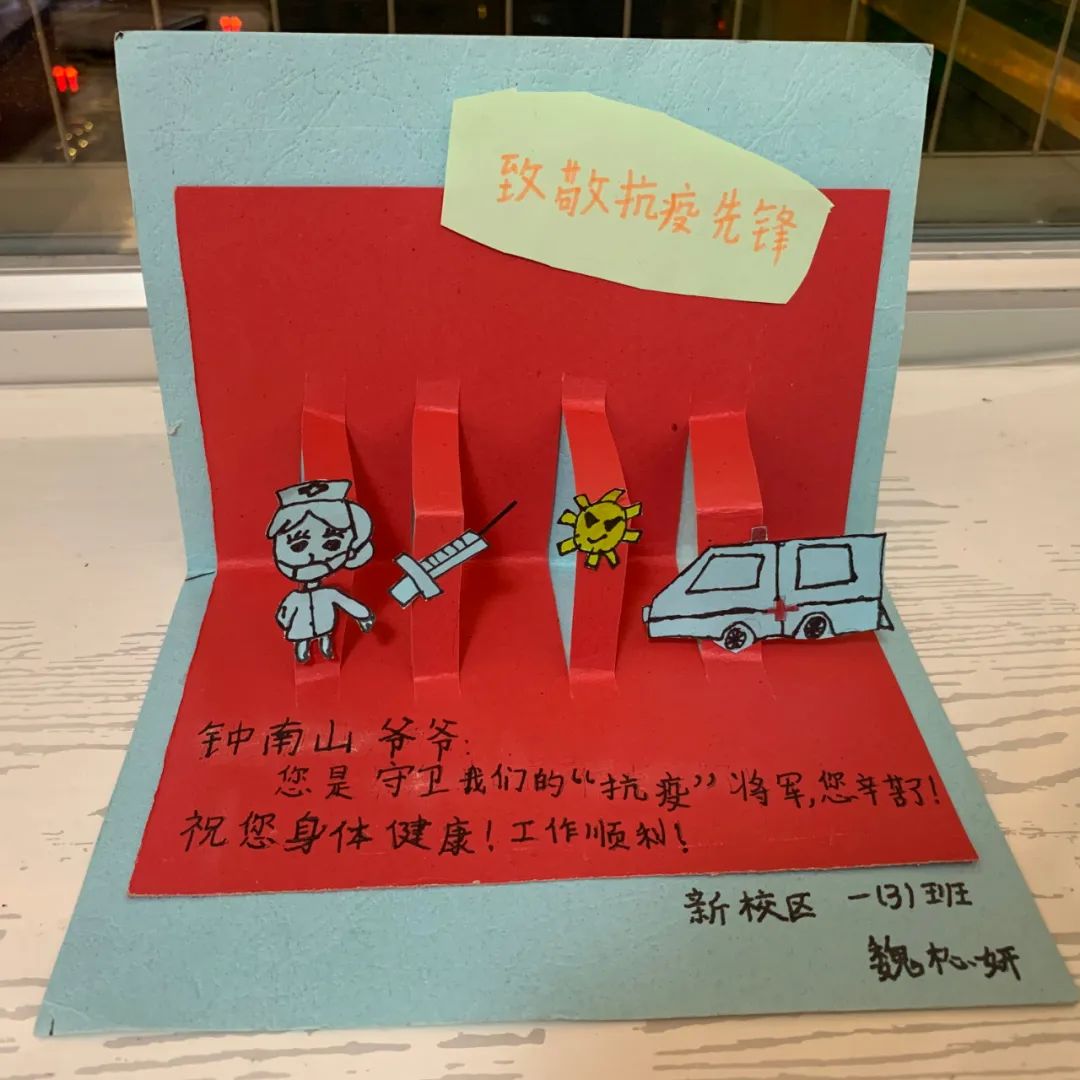 致敬抗疫先锋
钟南山爷爷:
您是守卫我们的“抗疫”将军,您辛苦了!
祝您身体健康!工作顺利!
新校区 一(3)班
魏 妍